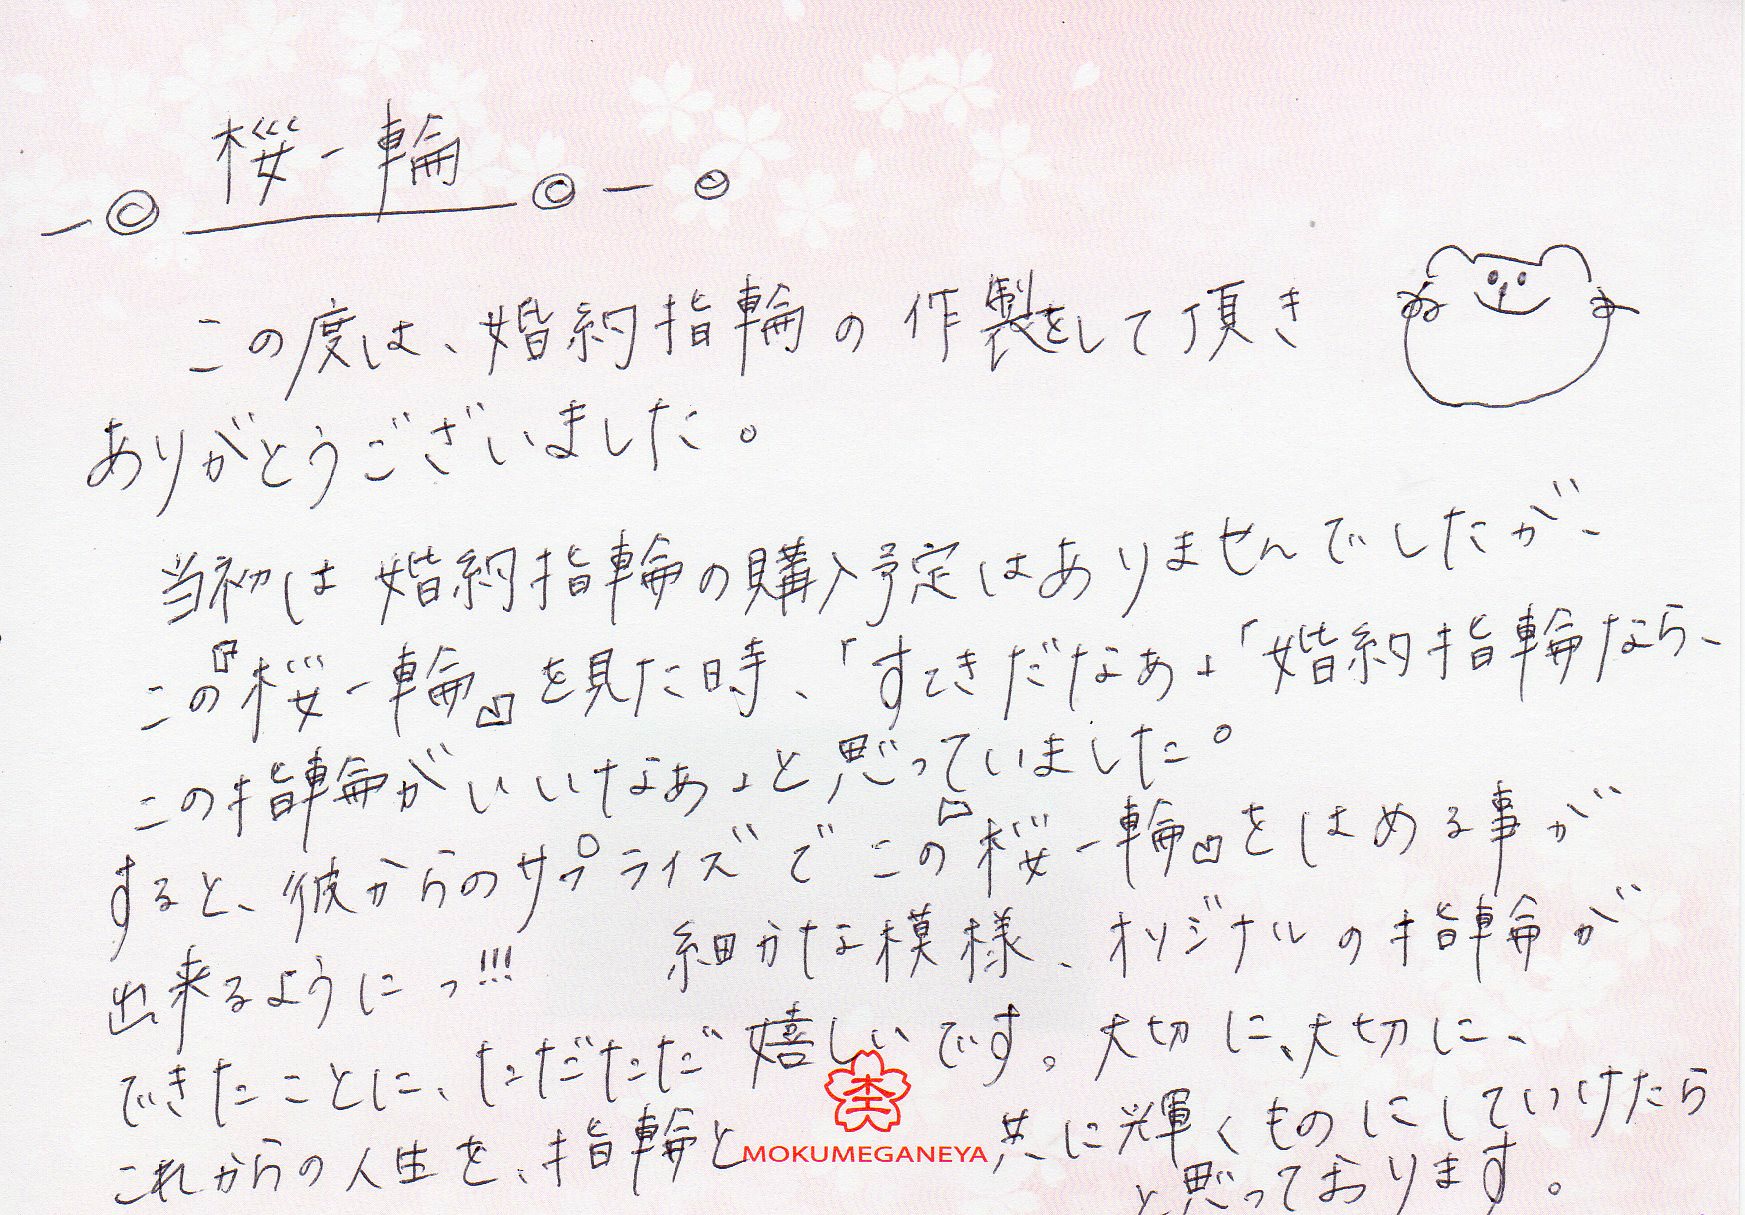 桜一輪
この度は、婚約指輪の作製をして頂き
ありがとうございました。
当初は婚約指輪の購入予定はありませんでしたが、
この『桜一輪』を見た時、「すてきだなぁ」「婚約指輪なら、
この指輪がいいなぁ」と思っていました。
すると、彼からのサプライズでこの『桜一輪』をはめる事が
出来るようにっ!!! 細かな模様、オリジナルの指輪が
できたことに、ただただ嬉しいです。大切に、大切に、
これからの人生を、指輪と共に輝くものにしていけたら
と思っております。
MOKUMEGANEYA